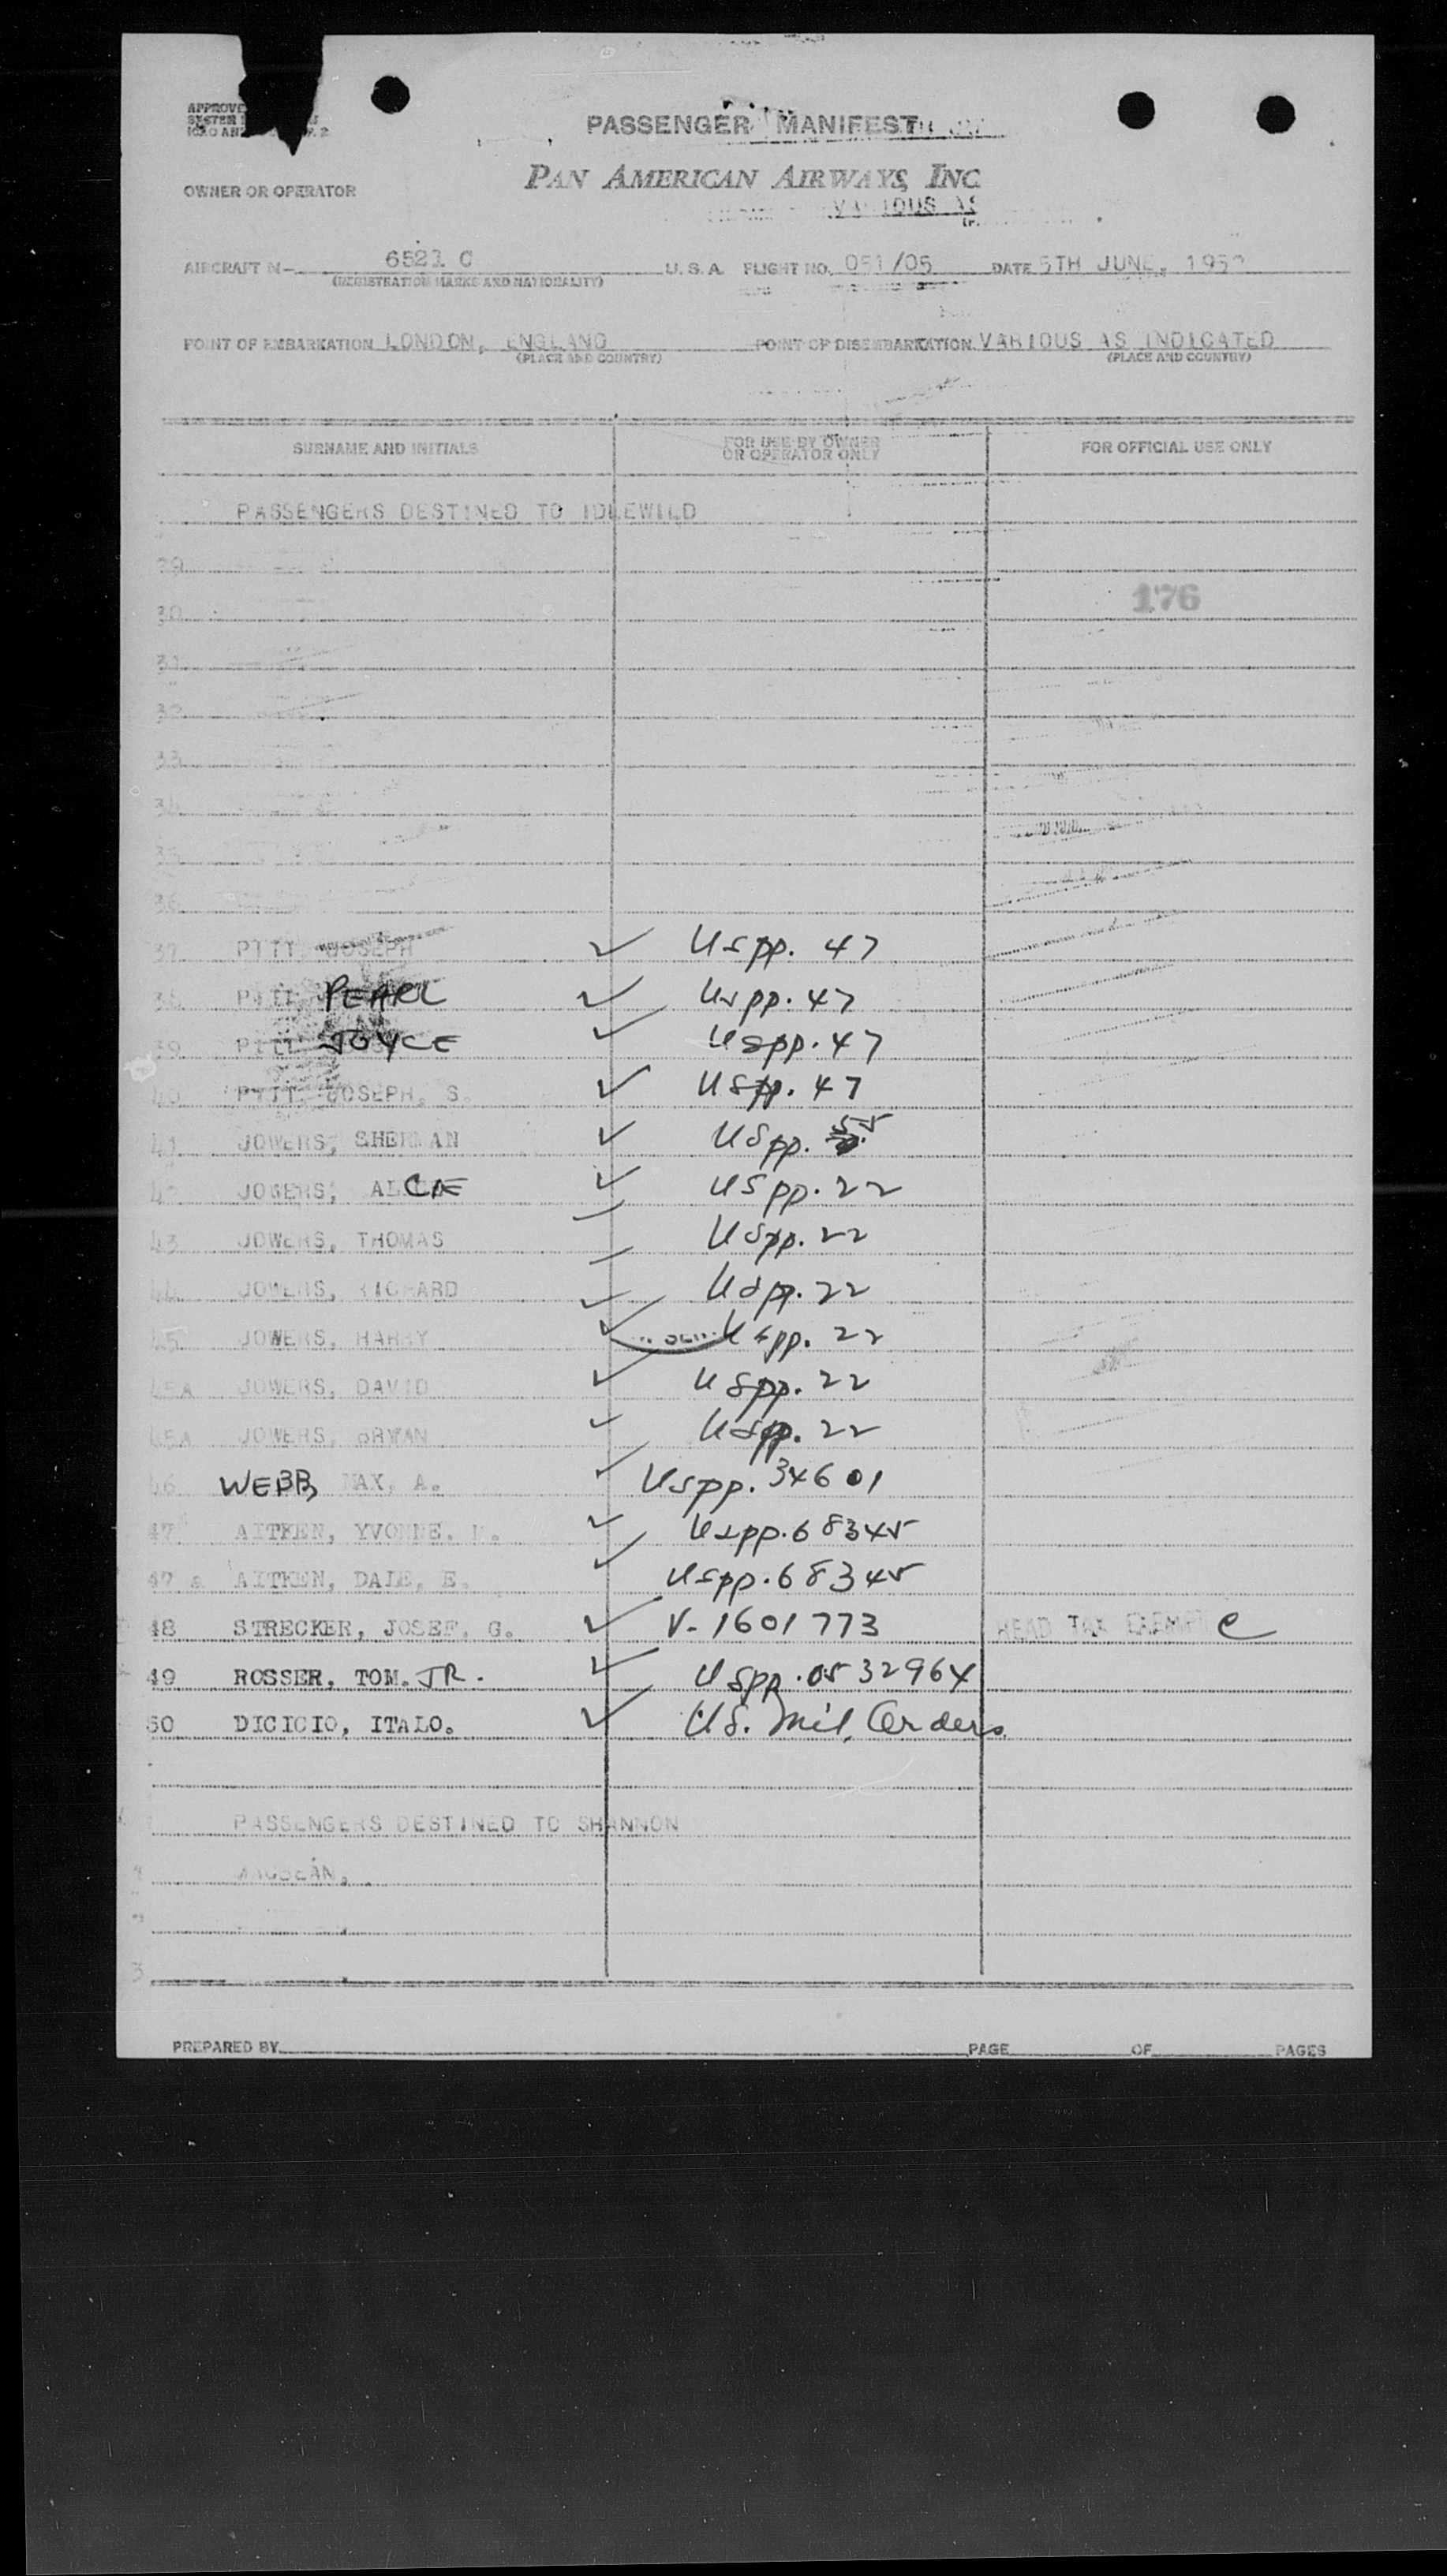 PASSENGER MANIFEST
PAN AMERICAN AIRWAYS, INC.
OWNER OR OPERATOR
VARIOUS AS
AIRCRAFT N- 6521 C U. S. A. FLIGHT NO. 051/05 DATE 5TH JUNE, 195
(REGISTRATION MARKS AND NATIONALITY)
POINT OF EMBARKATION LONDON, ENGLAND POINT OF DISEMBARKATION VARIOUS AS INDICATED
(PLACE AND COUNTRY) (PLACE AND COUNTRY)
SURNAME AND INITIALS FOR USE BY OWNER OR OPERATOR ONLY FOR OFFICIAL USE ONLY
PASSENGERS DESTINED TO IDLEWILD
29
30 176
31
32
33
34
35
36
37 JOSEPH ✓ USpp. 47
38 PEARL ✓ USpp. 47
39 JOYCE ✓ USpp. 47
40 JOSEPH, S. ✓ USpp. 47
41 JOWERS, SHERMAN ✓ USpp. 55
42 JOWERS, ALICE ✓ USpp. 22
43 JOWERS, THOMAS USpp. 22
44 JOWERS, RICHARD USpp. 22
45 JOWERS, HARRY ✓ USpp. 22
45A JOWERS, DAVID ✓ USpp. 22
45A JOWERS, BRYAN ✓ USpp. 22
46 WEBB, MAX, A. ✓ USpp. 34601
47 AITKEN, YVONNE. ✓ USpp. 68345
47 a AITKEN, DALE, E. ✓ USpp. 68345
48 STRECKER, JOSEF, G. ✓ V-1601773 HEAD TAX EXEMPT C
49 ROSSER, TOM. JR. ✓ USpp. 0532964
50 DICICIO, ITALO. ✓ US. Mil. Orders
PASSENGERS DESTINED TO SHANNON
MACBEAN,
PREPARED BY PAGE OF PAGES